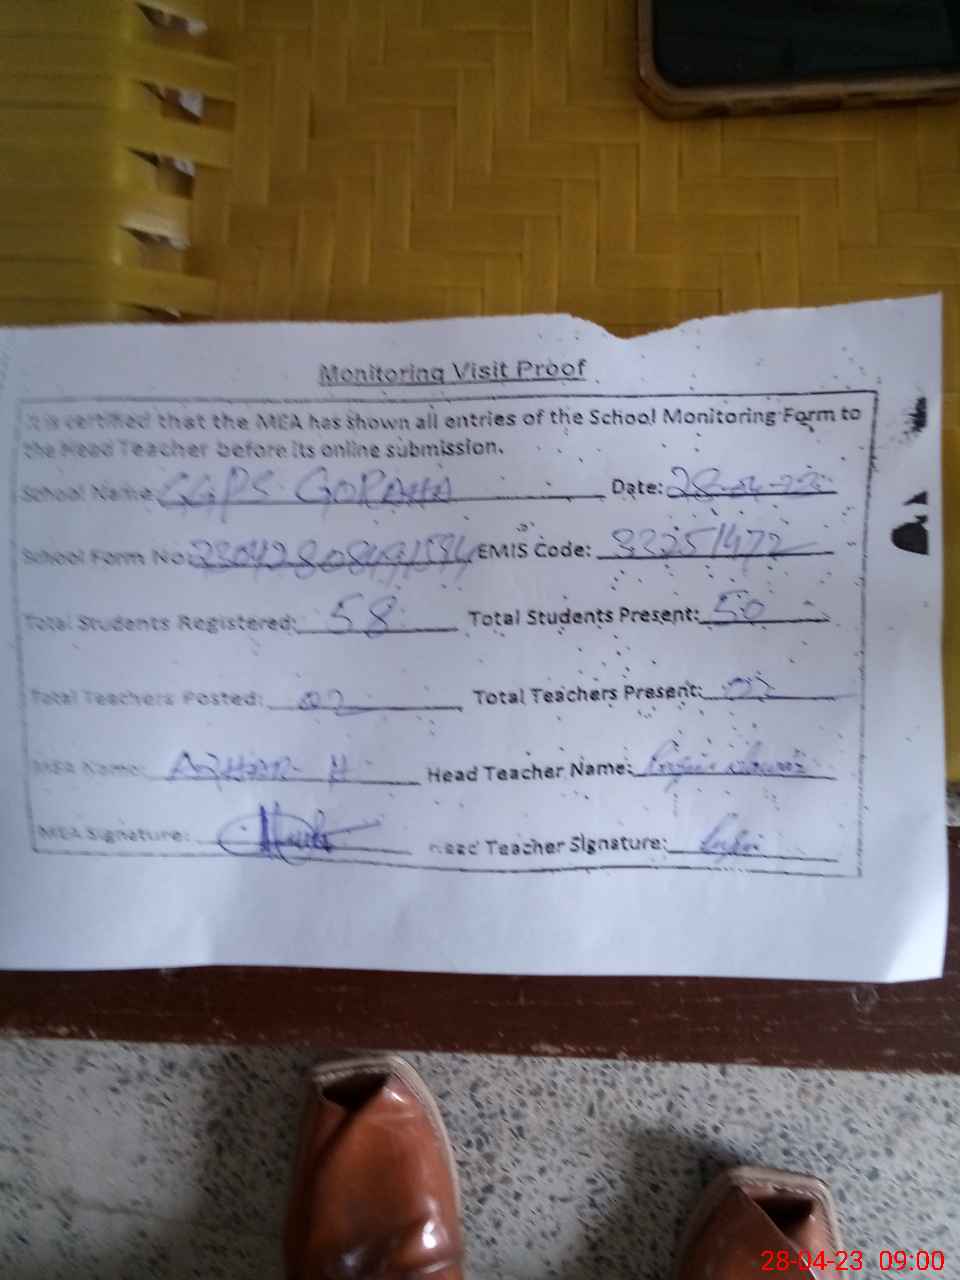 Monitoring Visit Proof
It is certified that the MEA has shown all entries of the School Monitoring Form to
the Head Teacher before its online submission.
School Name: GGPS GORAHA Date: 28-04-23
School Form No: EMIS Code: 33251472
Total Students Registered: 58 Total Students Present: 50
Total Teachers Posted: 02 Total Teachers Present: 02
MEA Name: AZHAR H Head Teacher Name:
MEA Signature: Head Teacher Signature:
28-04-23 09:00